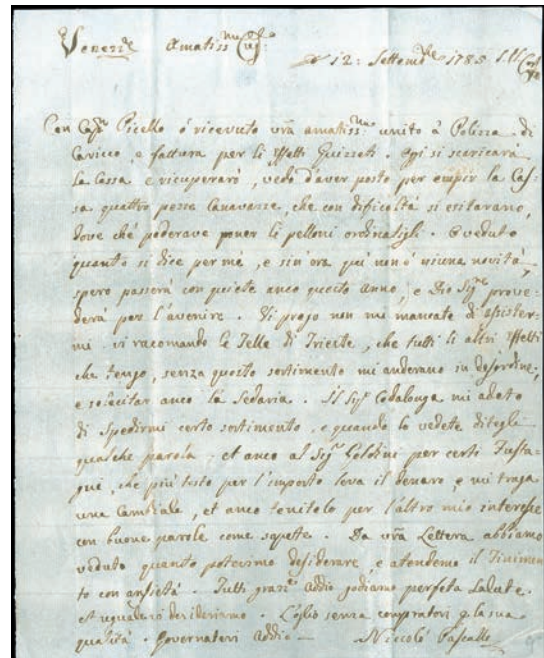 Venezia Amatiss.mo
12: Settemb.re 1785
Con Cap.n Picello ó ricevuto vrã amatiss.ma unito á Polizza di
Carico, e fattura per li effetti Guizzeti. Ogi si scaricará
la Cassa e ricuperaró, vedo d'aver posto per empir la Cas=
sa quattro pezze Canavazze, che con dificoltá si esitarano,
dove ché poderave poner li pelloni ordinatigli. O veduto
quanto si dice per mé, e sin ora qui non é niuna novitá,
spero passerá con quiete anco questo anno, e Dio Sig.re prove=
derá per l'avenire. Vi prego non mi mancate di assister=
mi. vi racomando le Telle di Trieste, che tutti li altri effetti
che tengo, senza questo sortimento mi anderano in desordine,
e solecitar anco la Sedaria. Il Sig.r Codalonga mi
di spedirmi certo sortimento, e quando lo vedete ditegli
qualche parola; et anco al Sig.r Goldini per certi Fusta=
gni, che più tosto per l'importo leva il denaro, e mi traga
una Cambiale, et anco tenitelo per l'altro mio interesse
con buone parole come sapette. Da vrã Lettera abbiamo
veduto quanto potessimo desiderare, e atendemo il Finimen
to con ansietá. Tutti Addio godiamo perfeta Salute,
et ugual vi desideriamo. L'oglio senza compratori p. la sua
qualitá. Governatevi Addio — Niccoló Pascalle